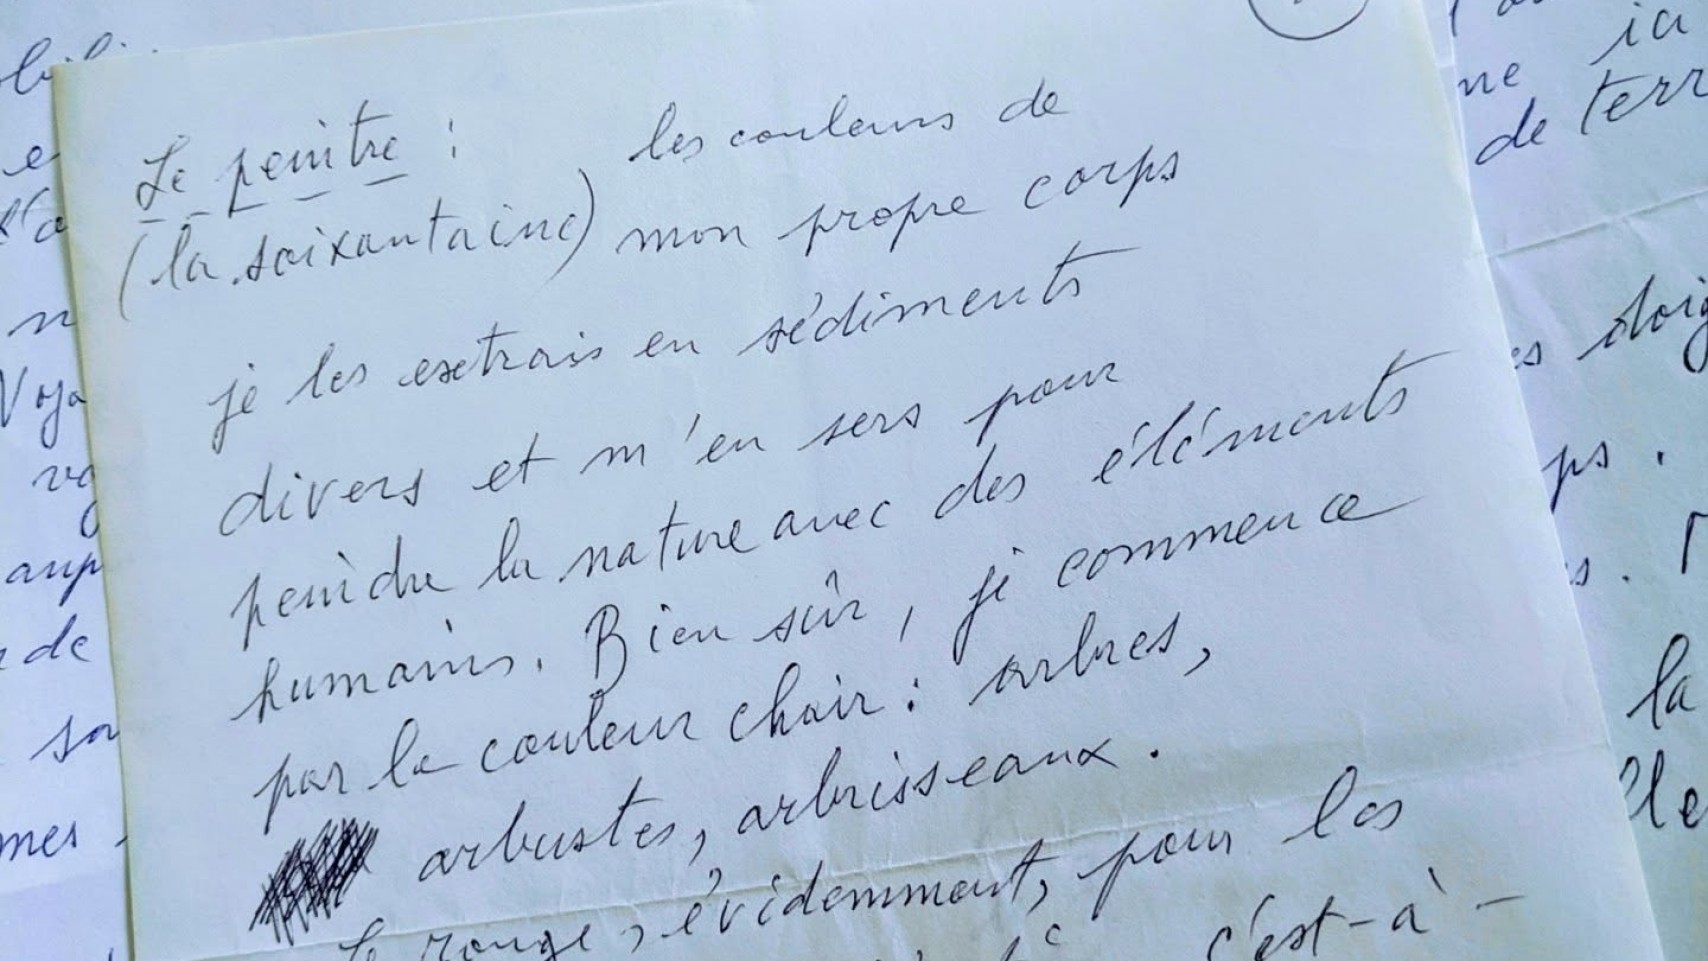 Le peintre : les couleurs de
(la soixantaine) mon propre corps
je les extrais en sédiments
divers et m'en sers pour
peindre la nature avec des éléments
humains. Bien sûr, je commence
par la couleur chair : arbres,
arbustes, arbrisseaux.
Le rouge, évidemment, pour les
c'est-à-
ne
de terr
la
de
mes